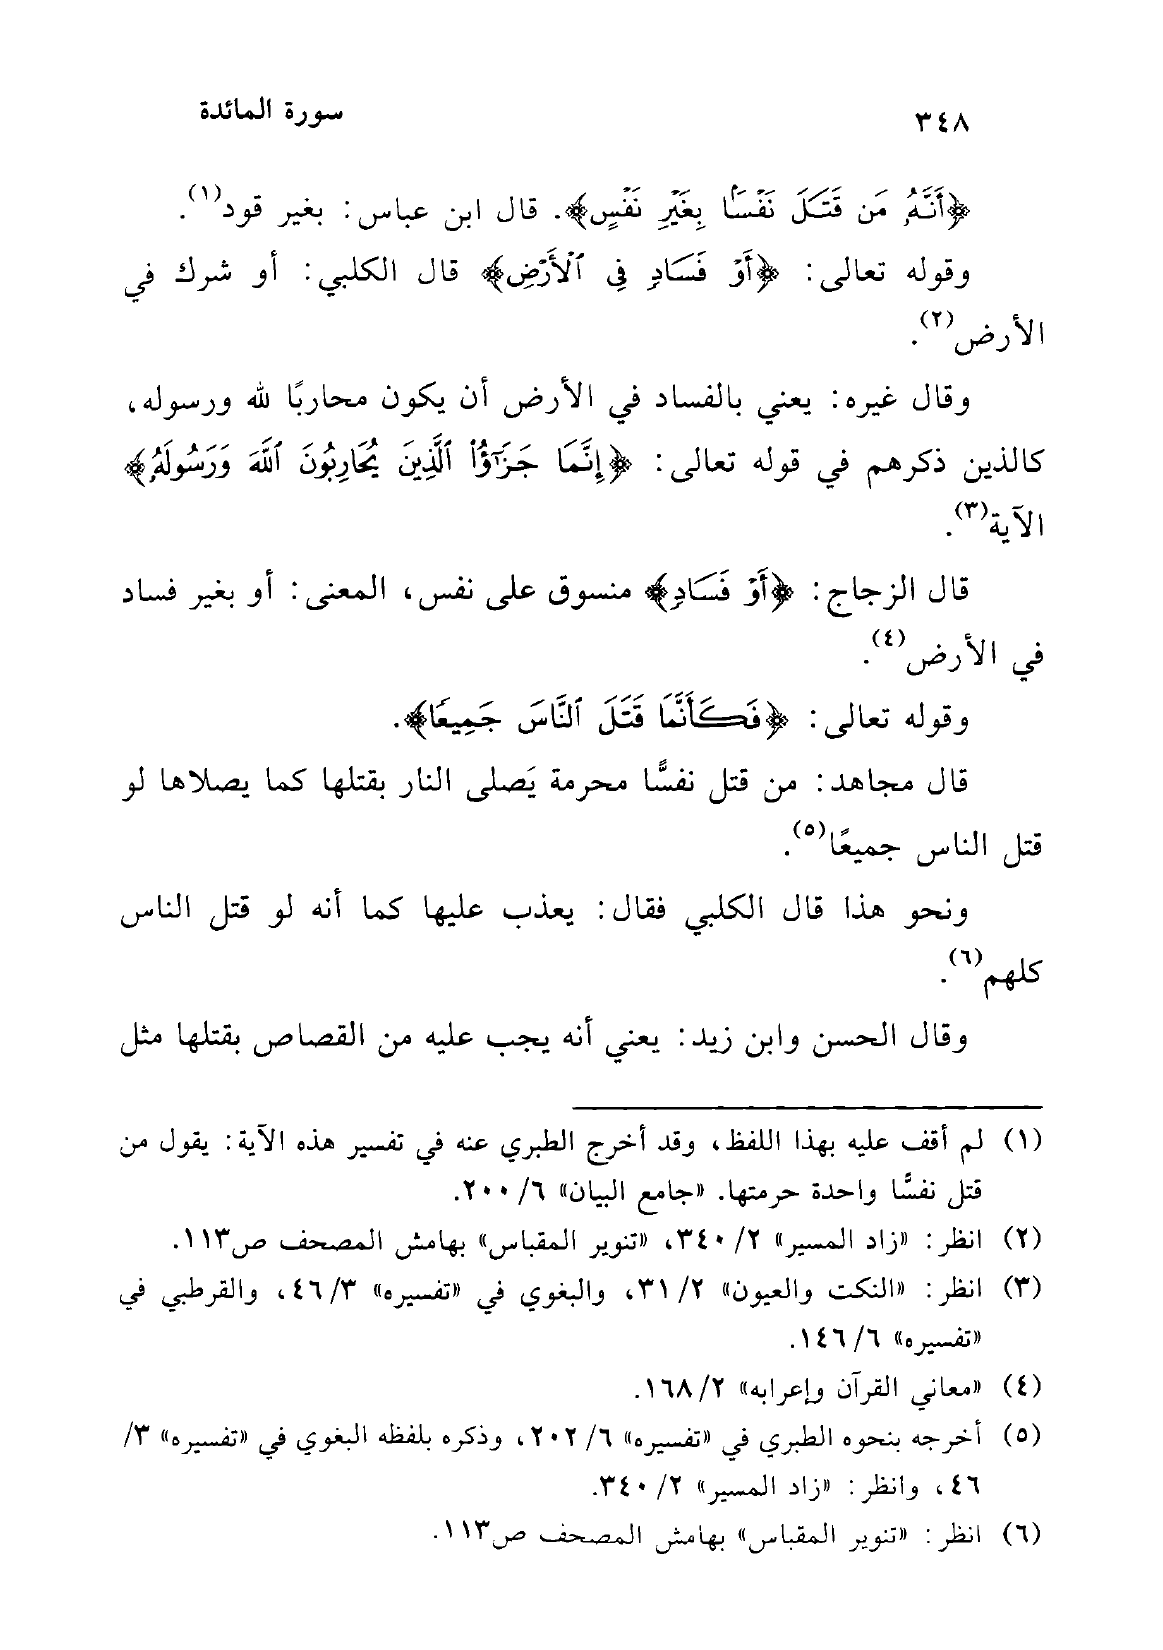 ٣٤٨ سورة المائدة
﴿أَنَّهُۥ مَن قَتَلَ نَفْسًۢا بِغَيْرِ نَفْسٍ﴾. قال ابن عباس: بغير قود(١).
وقوله تعالى: ﴿أَوْ فَسَادٍ فِى ٱلْأَرْضِ﴾ قال الكلبي: أو شرك في
الأرض(٢).
وقال غيره: يعني بالفساد في الأرض أن يكون محاربًا لله ورسوله،
كالذين ذكرهم في قوله تعالى: ﴿إِنَّمَا جَزَٰٓؤُا۟ ٱلَّذِينَ يُحَارِبُونَ ٱللَّهَ وَرَسُولَهُۥ﴾
الآية(٣).
قال الزجاج: ﴿أَوْ فَسَادٍ﴾ منسوق على نفس، المعنى: أو بغير فساد
في الأرض(٤).
وقوله تعالى: ﴿فَكَأَنَّمَا قَتَلَ ٱلنَّاسَ جَمِيعًا﴾.
قال مجاهد: من قتل نفسًا محرمة يَصلى النار بقتلها كما يصلاها لو
قتل الناس جميعًا(٥).
ونحو هذا قال الكلبي فقال: يعذب عليها كما أنه لو قتل الناس
كلهم(٦).
وقال الحسن وابن زيد: يعني أنه يجب عليه من القصاص بقتلها مثل
(١) لم أقف عليه بهذا اللفظ، وقد أخرج الطبري عنه في تفسير هذه الآية: يقول من
قتل نفسًا واحدة حرمتها. «جامع البيان» ٦/ ٢٠٠.
(٢) انظر: «زاد المسير» ٢/ ٣٤٠، «تنوير المقباس» بهامش المصحف ص١١٣.
(٣) انظر: «النكت والعيون» ٢/ ٣١، والبغوي في «تفسيره» ٣/ ٤٦، والقرطبي في
«تفسيره» ٦/ ١٤٦.
(٤) «معاني القرآن وإعرابه» ٢/ ١٦٨.
(٥) أخرجه بنحوه الطبري في «تفسيره» ٦/ ٢٠٢، وذكره بلفظه البغوي في «تفسيره» ٣/
٤٦، وانظر: «زاد المسير» ٢/ ٣٤٠.
(٦) انظر: «تنوير المقباس» بهامش المصحف ص١١٣.